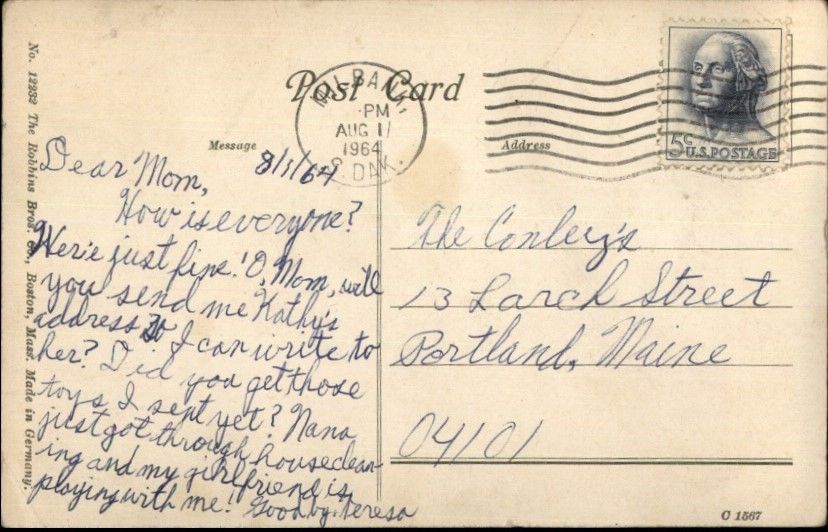 Post Card
MILBANK,
PM
AUG 1
1964
S. DAK.
5¢
U.S. POSTAGE
Message
Address
8/1/64
Dear Mom,
How is everyone?
We're just fine! O, Mom, will
you send me Kathy's
address? So I can write to
her? Did you get those
toys I sent yet? Nana
just got through houseclean-
ing and my girlfriend is
playing with me! Goodby. Teresa
The Conley's
13 Larch Street
Portland, Maine
04101
No. 12232 The Robbins Bros. Co., Boston, Mass. Made in Germany.
C 1567